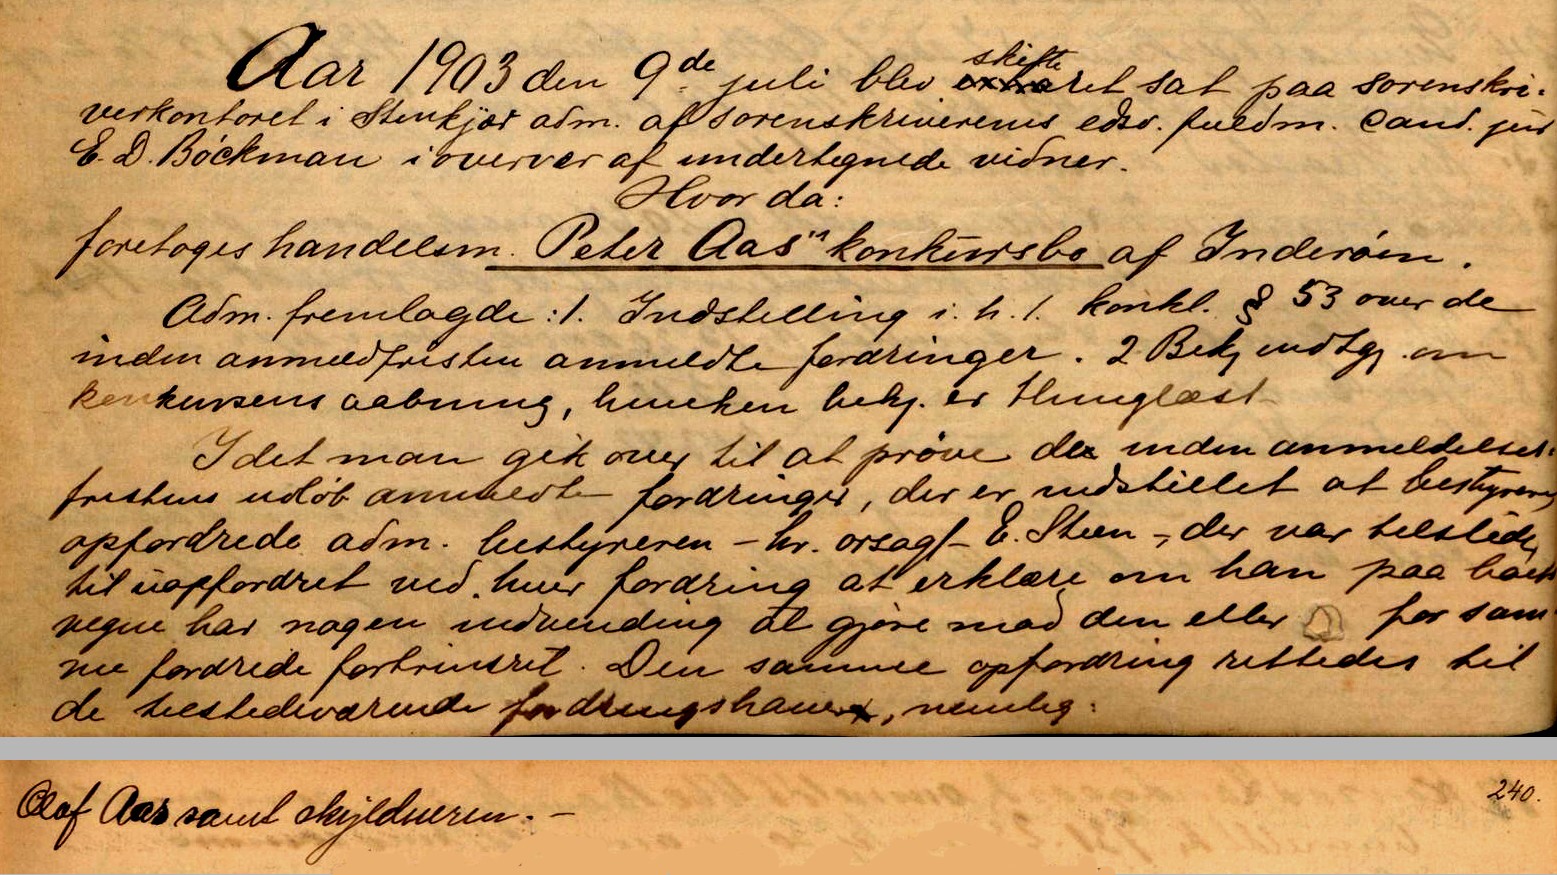 Aar 1903 den 9de juli blev skifteret sat paa sorenskri-
verkontoret i Stenkjær adm. af sorenskriverens edsv. fuldm. Cand. jur
E. D. Böckman i overvær af undertegnede vidner.
Hvor da:
foretoges handelsm. Peter Aas" konkursbo af Inderøen.
Adm. fremlagde: 1. Indstilling i. h. t. konkl. § 53 over de
inden anmeldfristen anmeldte fordringer. 2 Bekj indtgj. om
konkursens aabning, hvilken bekj. er thinglæst
Idet man gik over til at prøve de inden anmeldelses-
fristens udløb anmeldte fordringer, der er indstillet af bestyreren,
opfordrede adm. bestyreren – hr. orsagf – E. Steen –, der var tilstede,
til uopfordret ved hver fordring at erklære om han paa boets
vegne har nogen indvending at gjøre mod den eller for sam-
me fordrede fortrinsret. Den samme opfordring rettedes til
de tilstedeværende fordringshavere, nemlig:
240.
Olaf Aas samt skyldneren. –